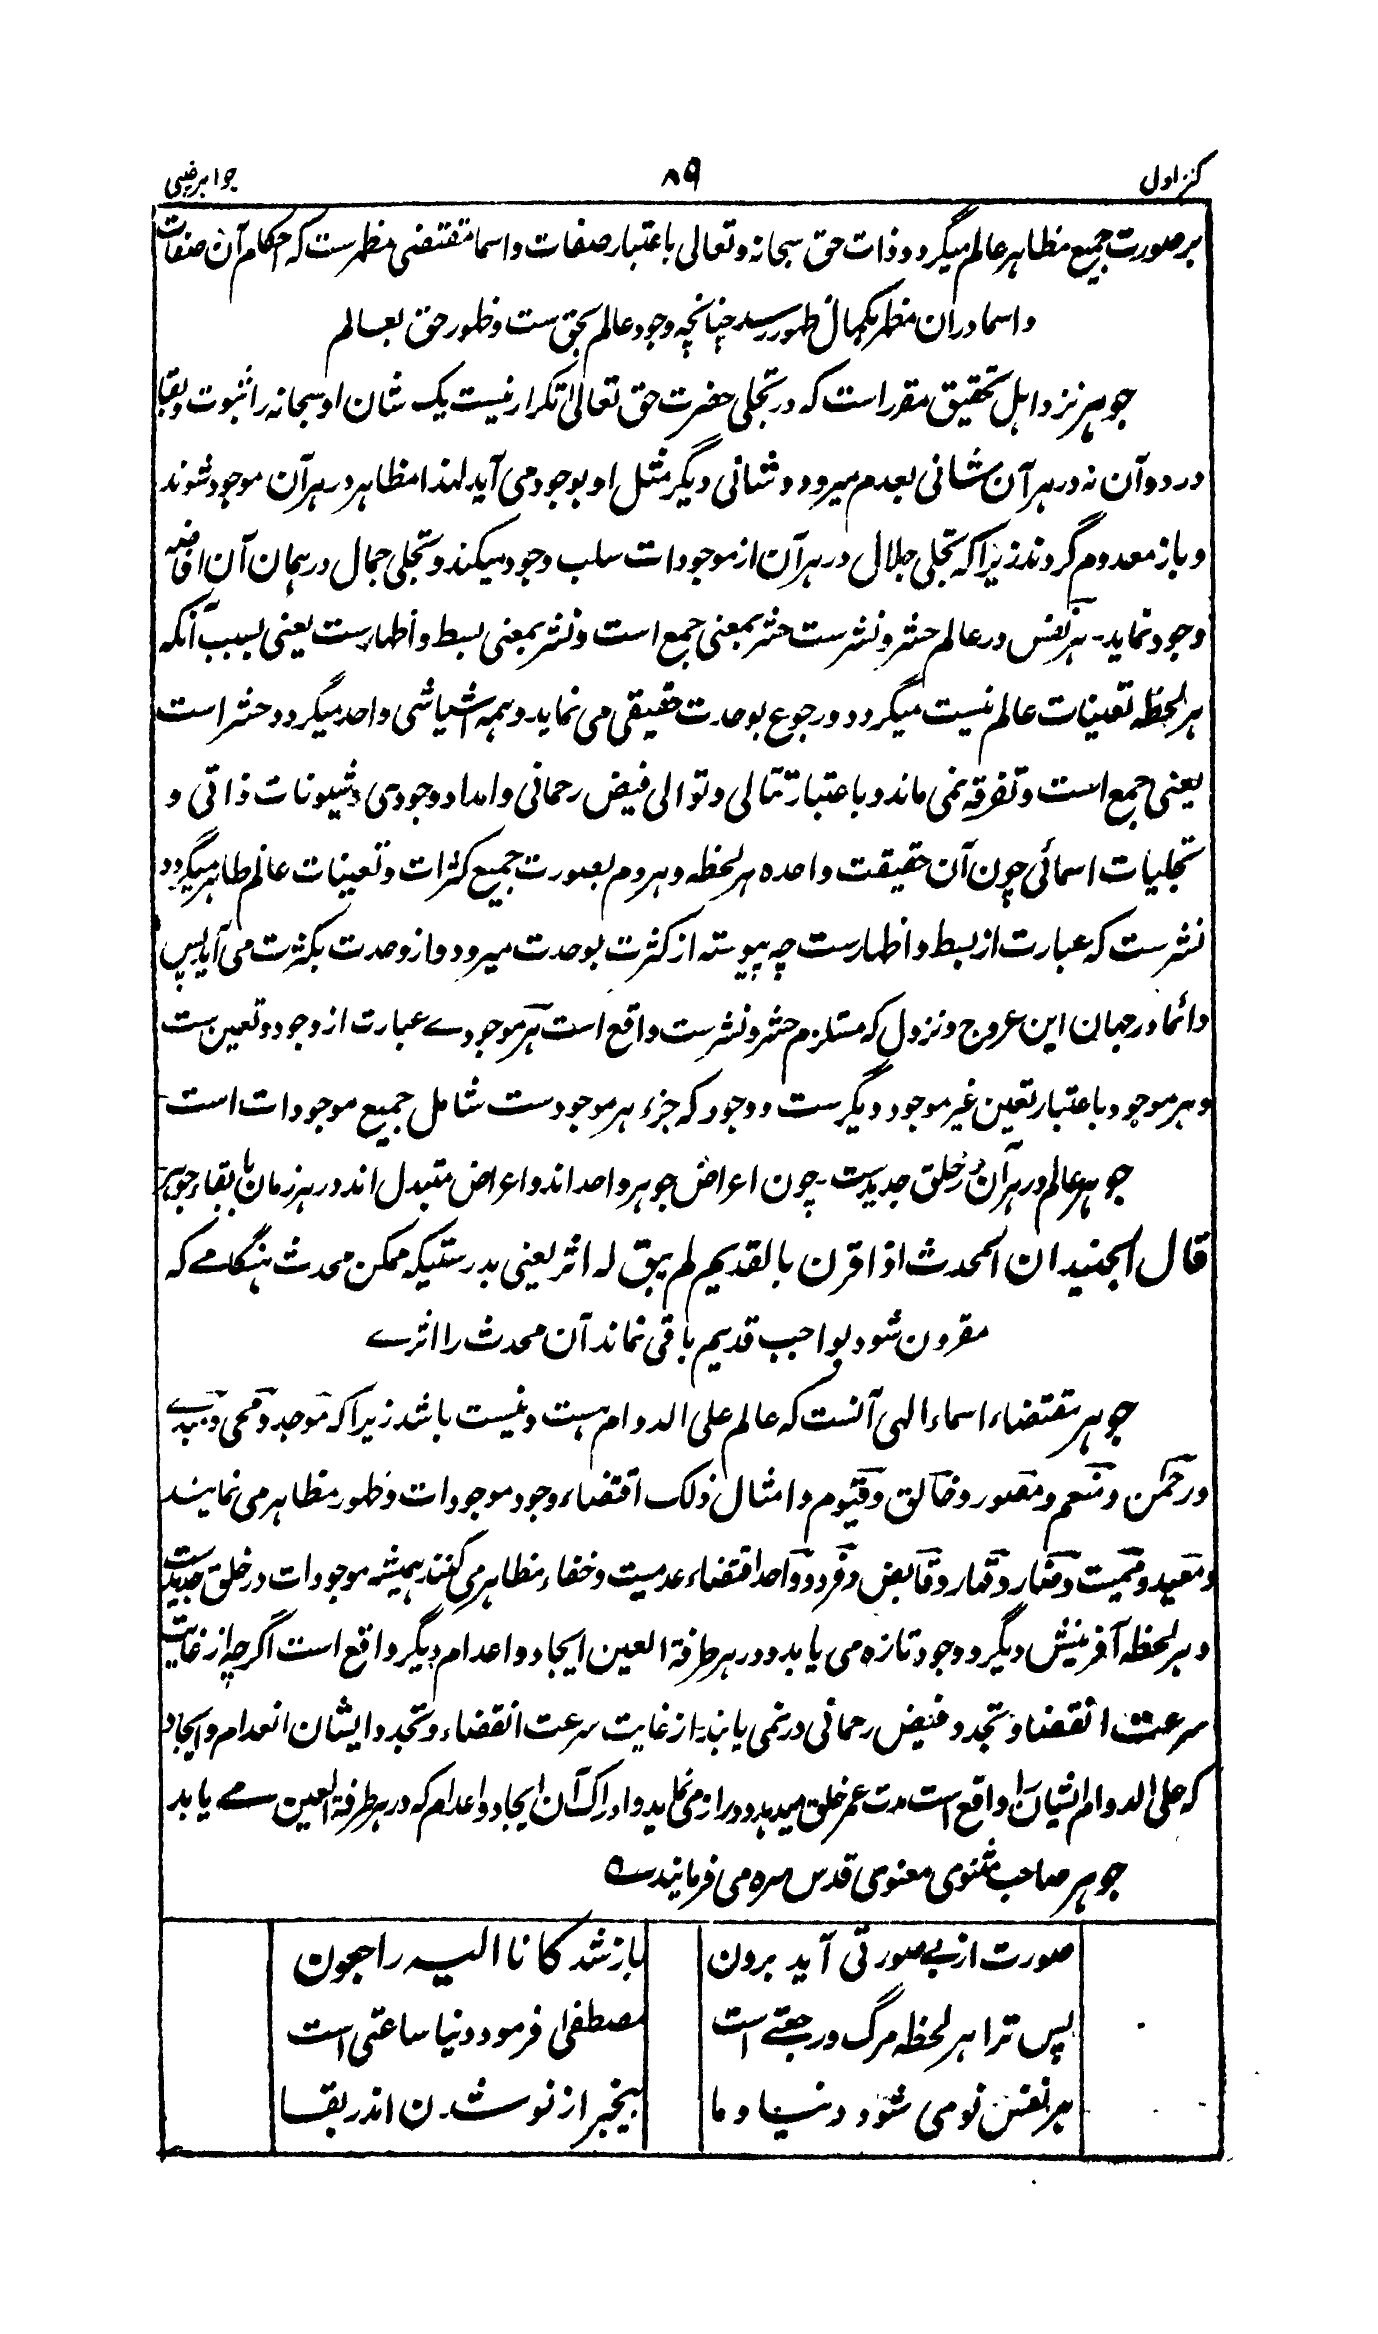 کنز اول
۸۹
جواهر غیبی
بر صورت جمیع مظاهر عالم میگردد و ذات حق سبحانه و تعالی باعتبار صفات و اسما مقتضی مظهرست که احکام آن صفات
و اسما دران مظهر بکمال ظهور رسد چنانچه وجود عالم بحق ست و ظهور حق بعالم
جوهر نزد اهل تحقیق مقرر است که در تجلی حضرت حق تعالی تکرار نیست یک شان او سبحانه را ثبوت و بقا
در دو آن نه در هر آن شانی بعدم میرود و شانی دیگر مثل او بوجود می آید لهذا مظاهر در هر آن موجود شوند
و باز معدوم گردند زیراکه تجلی جلال در هر آن از موجودات سلب وجود میکند و تجلی جمال در همان آن افاضه
وجود نماید - هر نفس در عالم حشر و نشرست حشر بمعنی جمع است و نشر بمعنی بسط و اظهارست یعنی بسبب آنکه
هر لحظه تعینات عالم نیست میگردد و رجوع بوحدت حقیقی می نماید و همه اشیا شی واحد میگردد حشر است
یعنی جمع است و تفرقه نمی ماند و باعتبار تتالی و توالی فیض رحمانی و امداد وجودی و شیونات ذاتی و
تجلیات اسمائی چون آن حقیقت واحده هر لحظه و هر دم بصورت جمیع کثرات و تعینات عالم ظاهر میگردد
نشرست که عبارت از بسط و اظهارست چه پیوسته از کثرت بوحدت میرود و از وحدت بکثرت می آید پس
دائما در جهان این عروج و نزول که مستلزم حشر و نشرست واقع است هر موجودے عبارت از وجود و تعین ست
و هر موجود باعتبار تعین غیر موجود دیگرست و وجود که جزء هر موجودست شامل جمیع موجودات است
جوهر عالم در هر آن در خلق جدیدست - چون اعراض جوهر واحد اند و اعراض متبدل اند در هر زمان با بقاء جوهر
قال الجنید ان المحدث اذا قرن بالقدیم لم یبق له اثر یعنی بدرستیکه ممکن محدث هنگامے که
مقرون شود بواجب قدیم باقی نماند آن محدث را اثرے
جوهر مقتضاء اسماء الهی آنست که عالم علی الدوام هست و نیست باشد زیراکه موجد و محی و مبدے
و رحمن و منعم و مصور و خالق و قیوم و امثال ذلک اقتضاء وجود موجودات و ظهور مظاهر می نمایند
و معید و ممیت و ضار و قهار و قابض و فرد و واحد اقتضاء عدمیت و خفاء مظاهر می کنند همیشه موجودات در خلق جدیدست
و بهر لحظه آفرینش دیگر و وجود تازه می یابد و در هر طرفة العین ایجاد و اعدام دیگر واقع است اگرچه از غایت
سرعت انقضا و تجدد فیض رحمانی در نمی یابند - از غایت سرعت انقضاء و تجدد ایشان انعدام و ایجاد
که علی الدوام ایشان را واقع است مدت عمر خلق میدهد و دراز می نماید و ادراک آن ایجاد و اعدام که در هر طرفة العین مے یابد
جوهر صاحب مثنوی معنوی قدس سره می فرمایند
صورت از بے صورتی آید برون
باز شد کانا الیه راجعون
پس ترا هر لحظه مرگ و رجعتے است
مصطفی فرمود دنیا ساعتی است
هر نفس نو می شود دنیا و ما
بیخبر از نو شدن اندر بقا